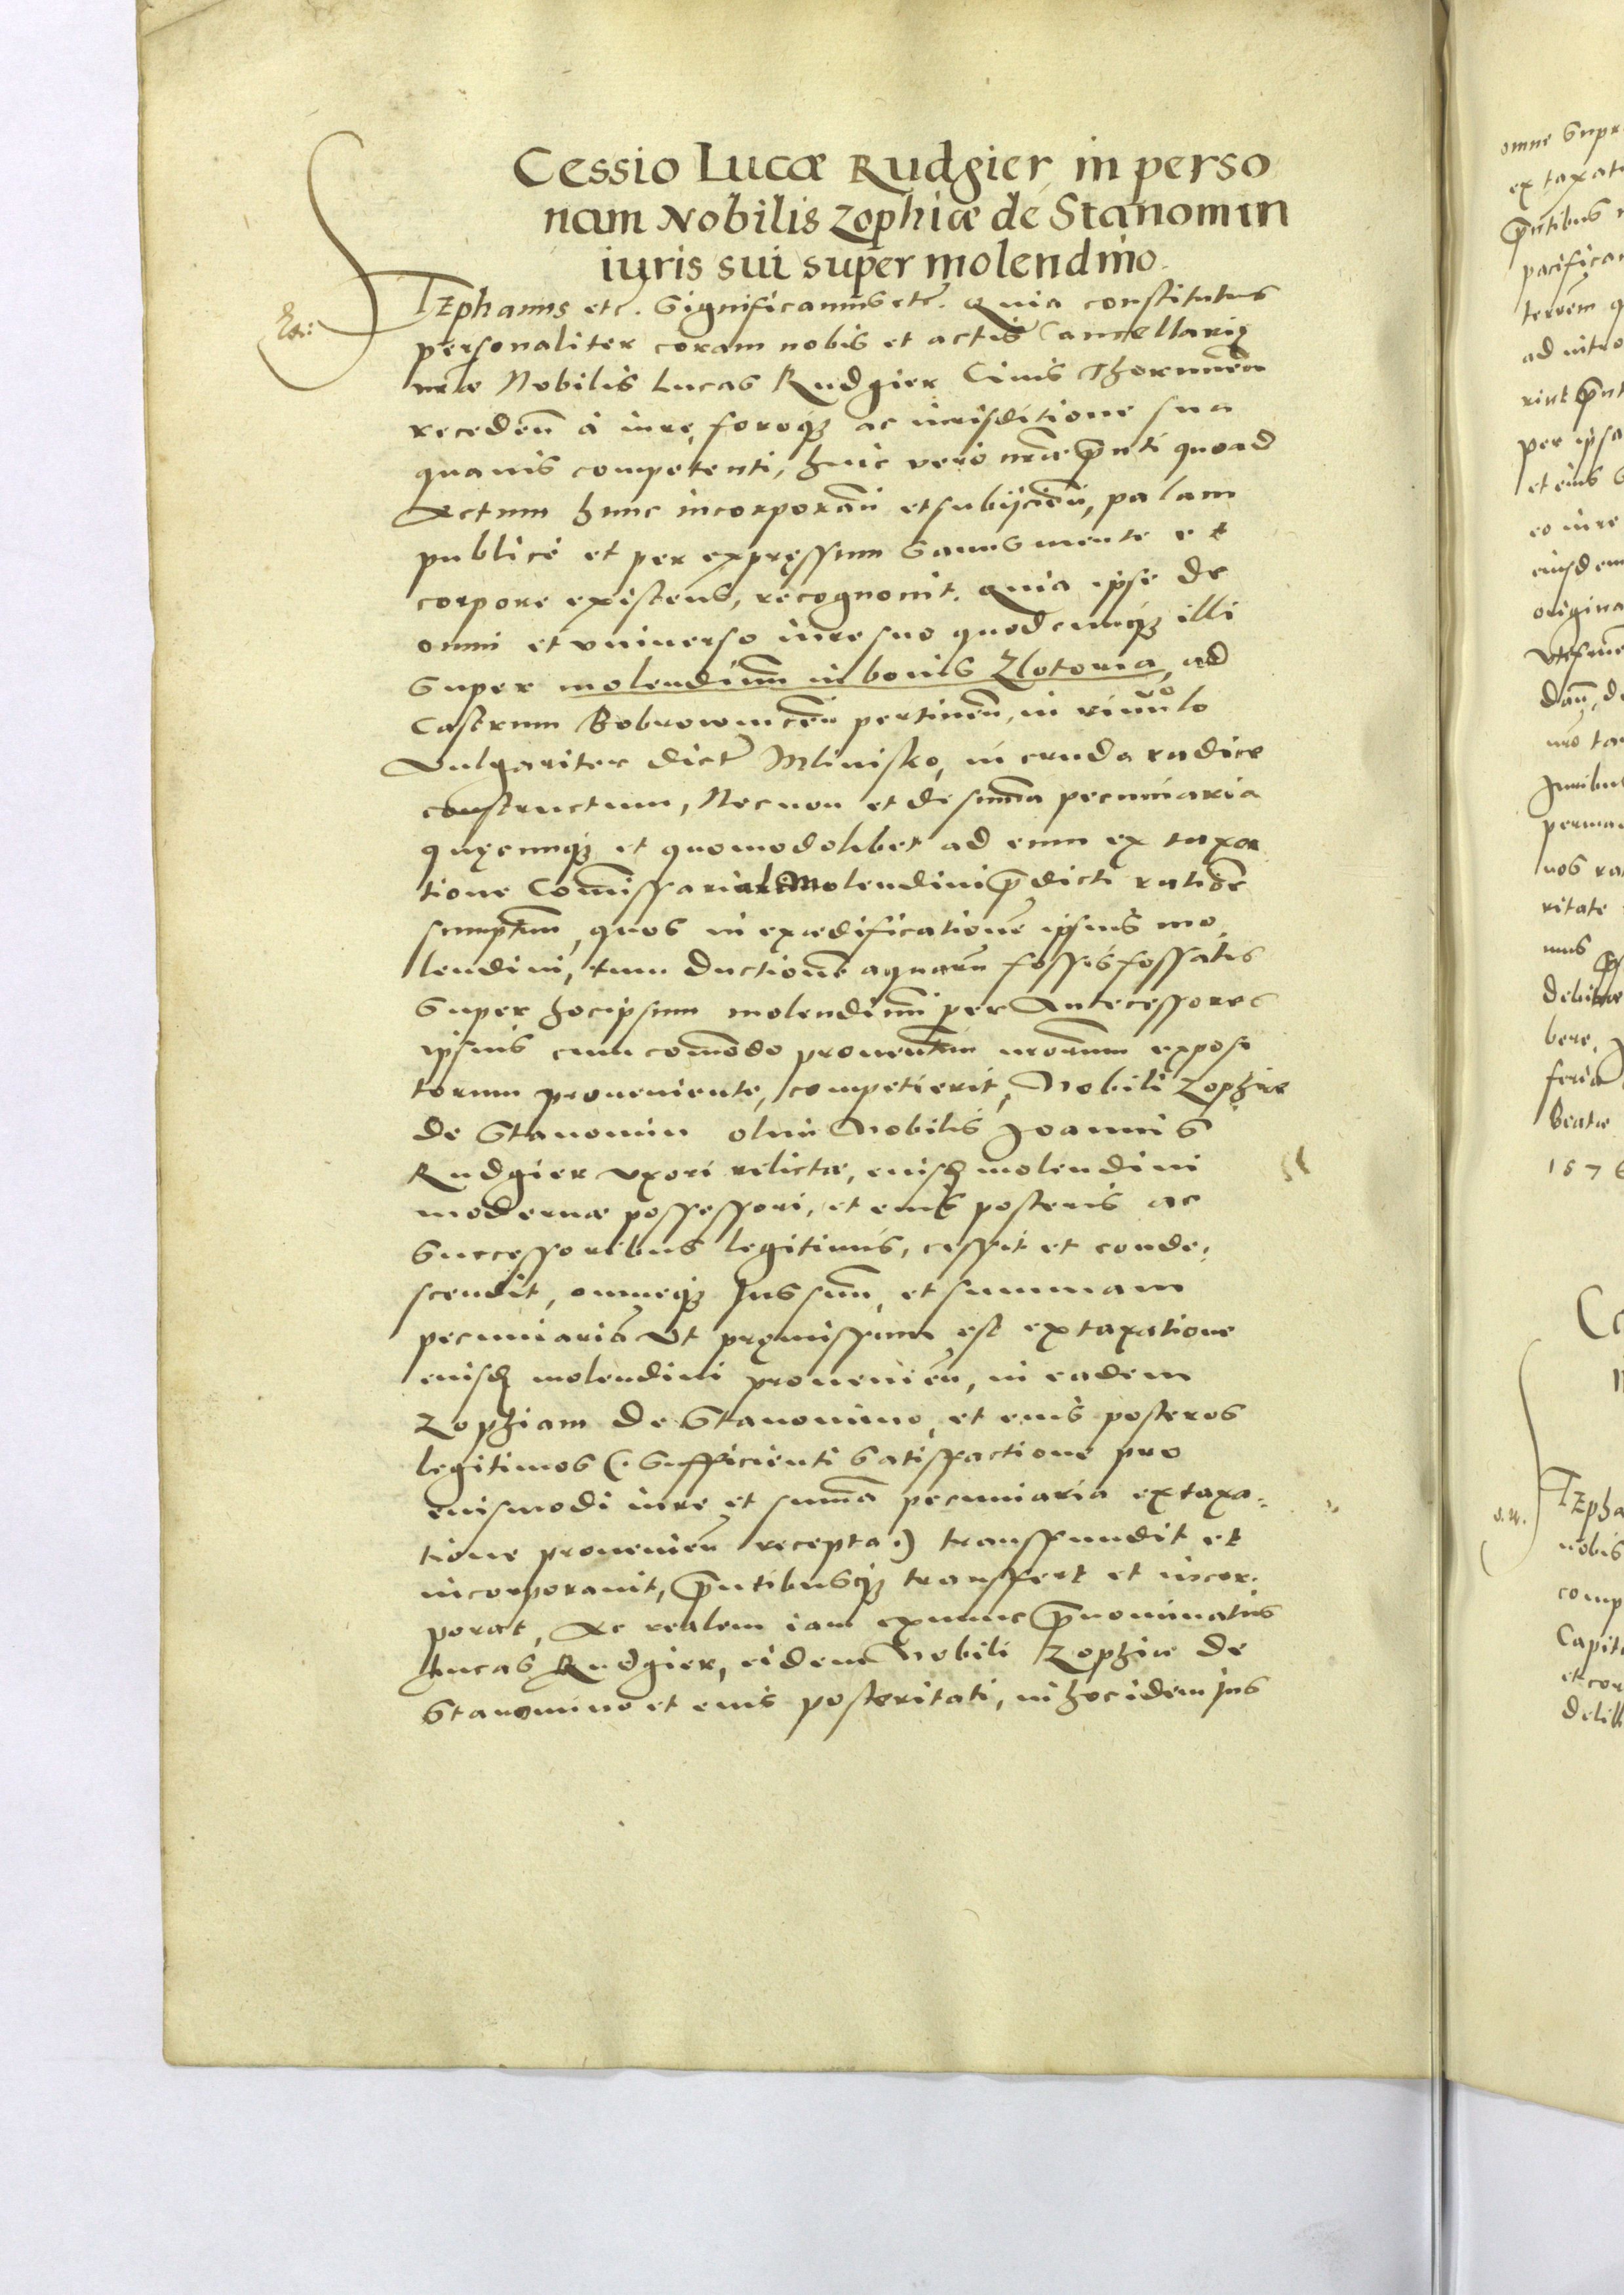 Cessio Lucæ Rudgier in perso
nam Nobilis Zophiæ de Stanomin
iuris sui super molendino.
STephanus etc. Significamus etc. Quia constitutus
personaliter coram nobis et actis Cancellariæ
nr̃æ Nobilis Lucas Rudgier Civis Thorunen̄
receden̄ à iure, foroq₃ ac iurisditione sua
quavis competenti, huic vero nr̃æ p̄nti quoad
Actum hunc incorporan̄ et subijcien̄, palam
publicè et per expressum sanus mente et
corpore existens, recognovit. Quia ipse de
omni et universo iure suo quodcunq₃ illi
super molendinum in bonis Zlotoria, ad
Castrum Bobrownicen̄ pertinen̄, in rivulo
Vulgariter dict̃ Mlinisko, in cruda radice
constructum, Necnon et de summa pecuniaria
quęcunq₃ et quomodolibet ad eum ex taxa
tione Com̄issariali Molendini p̄dicti rat̄one
sumptum, quos in exædificatione ipsius mo,
lendini, tum ductione aquarum fossis fossatis
super hocipsum molendinum per Antecessores
ipsius cum com̄odo proventum nrorum exposi
torum proveniente, competierit, Nobili Zophiæ
de Stanomin olim Nobilis Joannis
Rudgier uxori relictæ, eiusd molendini
modernæ possessori, et eius posteris ac
successoribus legitimis, cessit et conde,
scendit, omneq₃ Jus suum, et summam
pecuniariã Ut pręmissum est ex taxatione
eiusd molendini provenien̄, in eadem
Zophiam de Stanomino, et eius posteros
legitimos (: sufficienti satisfactione pro
eiusmodi iure et summa pecuniaria ex taxa=
tione provenien̄ recepta :) transfundit et
incorporavit, p̄ntibusq₃ transfert et incor.
porat, Ac realem iam exnunc p̄nominatus
Lucas Rudgier, eidem Nobili Zophiæ de
Stanomino et eius posteritati, in hoc idem Jus
omne
ex taxat
p̄ntibus
pacifica
ad intro
per ipsa
et eius
eo iure
eiusdem
origina
dan̄, de
nro ta
perma
nos ra
ritate
mus
bere,
feria
Beatæ
157
Tepha
nobis
comp
Capit
et cor